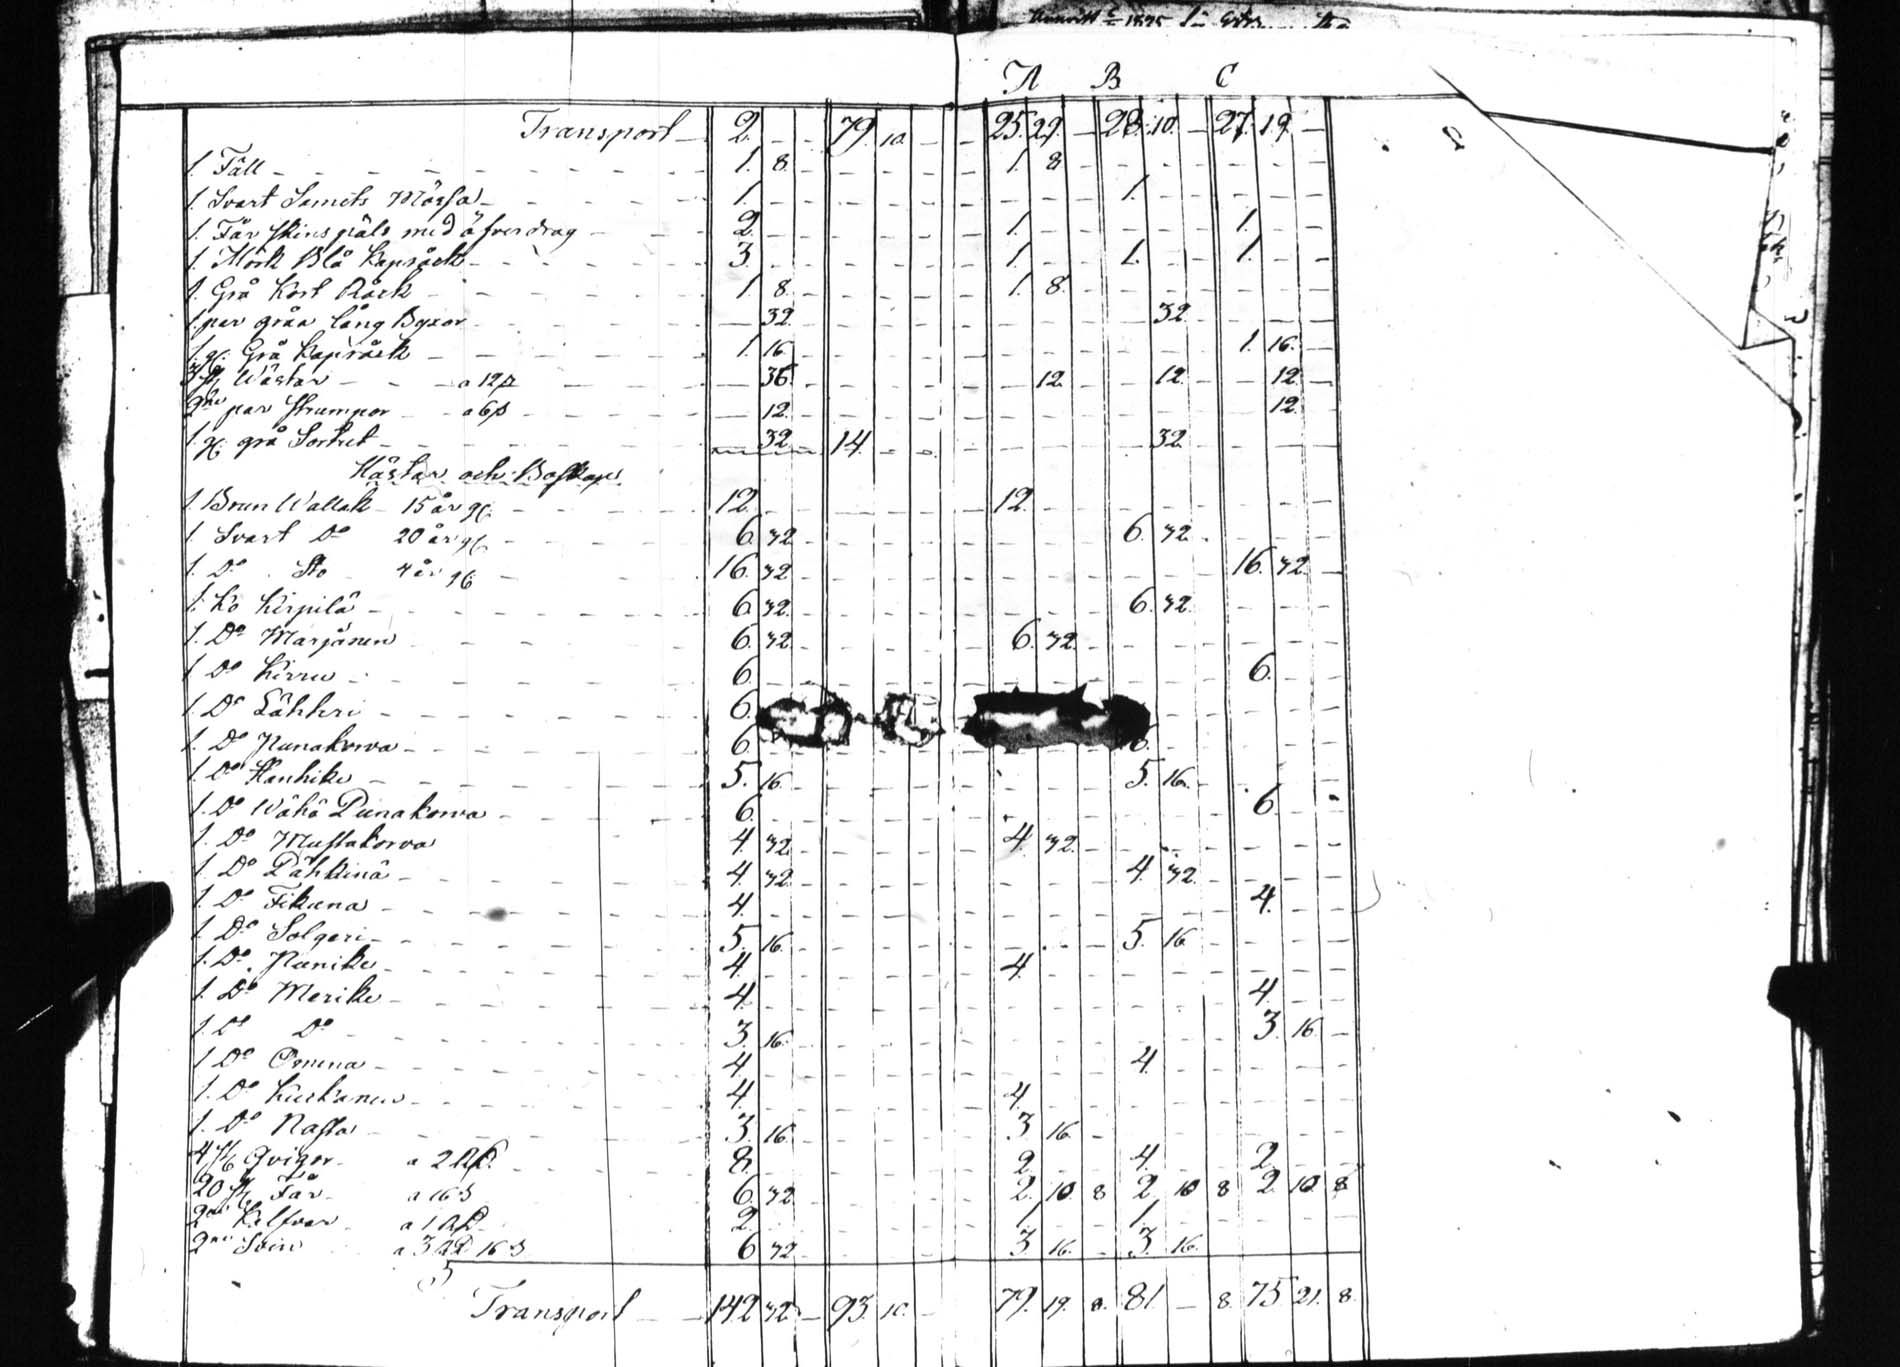 A B C
Transport 2. 79. 10. 25. 29. 28. 10. 27. 19.
1. Fäll 1. 8. 1. 8
1. Svart Samets Mössa 1. 1.
1. Får skins päls med öfverdrag 2. 1. 1.
1. Mörk Blå Kapråck 3. 1. 1. 1.
1. Grå Kort Råck 1. 8. 1. 8.
1. par gråa lång Byxor 32. 32.
1. g. Grå Kapråck 1. 16. 1. 16.
3 st Wästar a 12 s 36. 12. 12. 12.
2ne par strumpor a 6 s 12. 12.
1. g. grå Sortut 32. 14. 32.
Hästar och Boskap
1. Brun Wallak 15 år gl. 12. 12.
1 Svart Do 20 år gl. 6. 32. 6. 32.
1. Do Sto 4 år gl. 16. 32. 16. 32.
1. Ko Kirpilä 6. 32. 6. 32.
1. Do Marjanen 6. 32. 6. 32.
1 Do Kirru 6. 6.
1. Do Lähkri 6.
1. Do Punakorva 6.
1. Do Hanhike 5. 16. 5. 16.
1. Do Wähä Punakorva 6. 6.
1. Do Mustakorva 4. 32. 4. 32.
1. Do Pähkinä 4. 32. 4. 32.
1. Do Fikuna 4. 4.
1. Do Solgeri 5. 16. 5. 16
1. Do Punike 4. 4.
1. Do Merike 4. 4.
1. Do Do 3. 16. 3. 16.
1 Do Omena 4. 4.
1. Do Kurkanen 4. 4.
1. Do Nasta 3. 16. 3 16.
4 st Qvigor a 2 RD. 8. 2. 4. 2.
20 st Får a 16 s 6. 32 2. 10. 8 2. 10 8 2. 10. 8
2ne Kalfvar a 1 RD 2. 1 1.
2ne Svin a 3 RD 16 s 6 32 3. 16. 3. 16.
Transport 142 32 93. 10. 79. 19. 8. 81. 8. 75 21. 8.